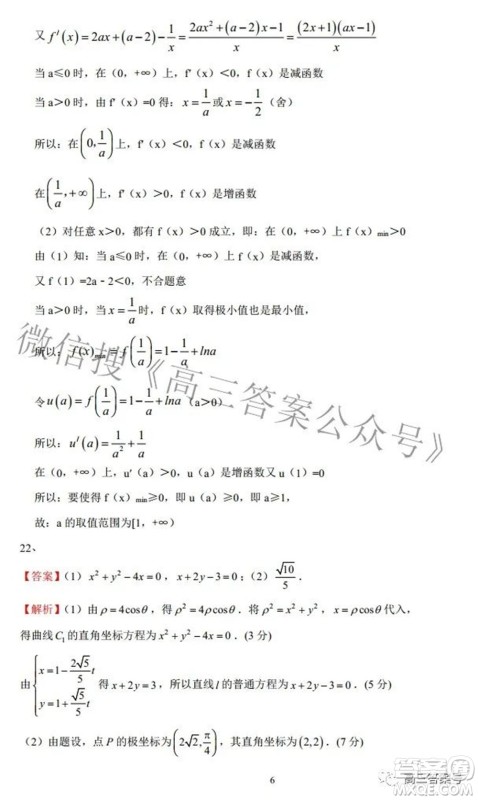 又 f′(x)=2ax+(a−2)−1/x=(2ax²+(a−2)x−1)/x=((2x+1)(ax−1))/x
当 a≤0 时，在（0，+∞）上，f'（x）＜0，f（x）是减函数
当 a＞0 时，由 f'（x）=0 得：x=1/a 或 x=−1/2（舍）
所以：在(0,1/a)上，f'（x）＜0，f（x）是减函数
在(1/a,+∞)上，f'（x）＞0，f（x）是增函数
（2）对任意 x＞0，都有 f（x）＞0 成立，即：在（0，+∞）上 f（x）min＞0
由（1）知：当 a≤0 时，在（0，+∞）上 f（x）是减函数，
又 f（1）=2a﹣2＜0，不合题意
当 a＞0 时，当 x=1/a 时，f（x）取得极小值也是最小值，
所以：f(x)min=f(1/a)=1−1/a+lna
令 u(a)=f(1/a)=1−1/a+lna（a＞0）
所以：u′(a)=1/a²+1/a
在（0，+∞）上，u'（a）＞0，u（a）是增函数又 u（1）=0
所以：要使得 f（x）min≥0，即 u（a）≥0，即 a≥1，
故：a 的取值范围为[1，+∞）
22、
【答案】（1）x²+y²−4x=0，x+2y−3=0；（2）√10/5．
【解析】（1）由 ρ=4cosθ，得 ρ²=4ρcosθ．将 ρ²=x²+y²，x=ρcosθ 代入，
得曲线 C₁ 的直角坐标方程为 x²+y²−4x=0．(3 分)
由{x=1−(2√5/5)t
y=1+(√5/5)t 得 x+2y=3，所以直线 l 的普通方程为 x+2y−3=0．(5 分)
（2）由题设，点 P 的极坐标为(2√2,π/4)，其直角坐标为(2,2)．(7 分)
6
微信搜《高三答案公众号》
高三答案号